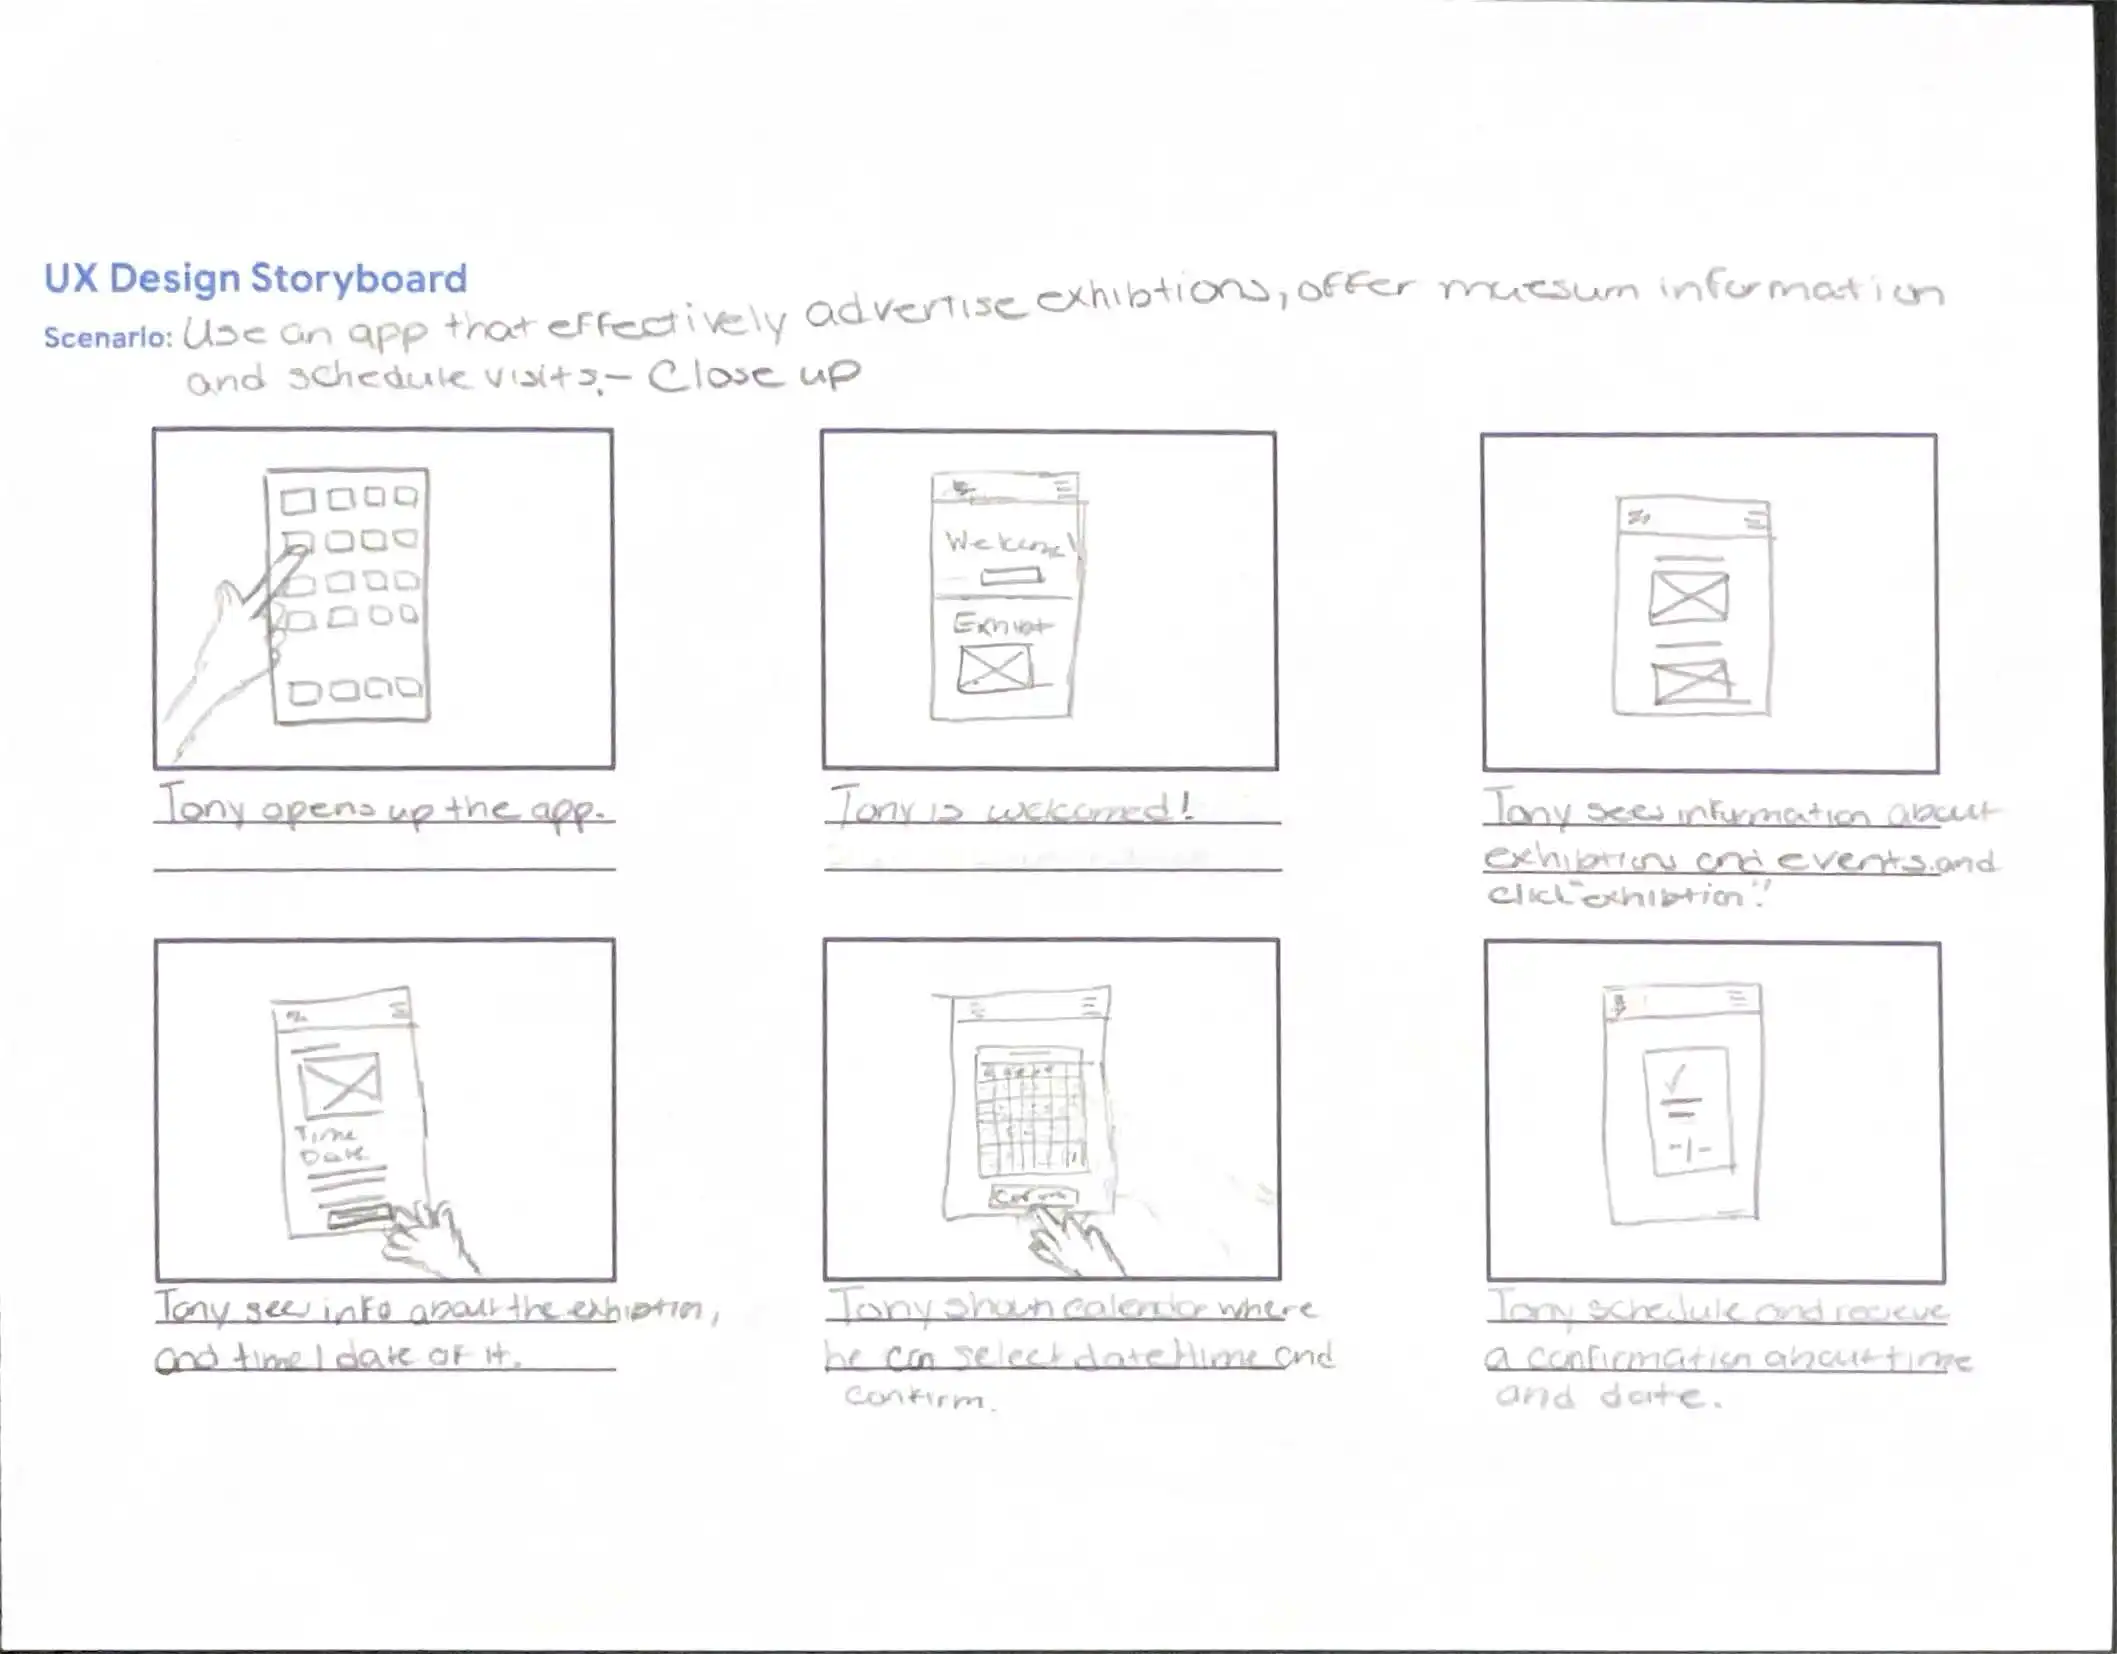 UX Design Storyboard
Scenario: Use an app that effectively advertise exhibtions, offer muesum information
and schedule visits. - Close up
Welcome!
Exhibt
Tony opens up the app.
Tony is welcomed!
Tony sees information about
exhibtions and events. and
click "exhibtion".
Time
Date
Confirm
Tony see info about the exhibtion,
and time / date of it.
Tony shown calendar where
he can select date/time and
confirm.
Tony schedule and recieve
a confirmation about time
and date.